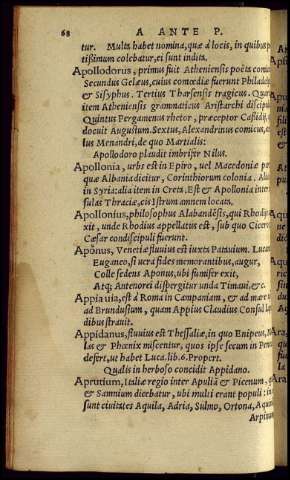 68 A ANTE P.
tur. Multa habet nomina, quæ à locis, in quibus p
tißimum colebatur, ei sunt indita.
Apollodorus, primus fuit Atheniensis poëta comi
Secundus Gelœus, cuius comœdiæ fuerunt Philade
& Sisyphus. Tertius Tharsensis tragicus. Qua
item Atheniensis grammaticus Aristarchi discipu
Quintus Pergamenus rhetor, præceptor Caßidij,
docuit Augustum. Sextus, Alexandrinus comicus,
lus Menandri, de quo Martialis:
Apollodoro plaudit imbrifer Nilus.
Apollonia, urbs est in Epiro, uel Macedonia po
quæ Albania dicitur, Corinthiorum colonia. Ali
in Syria: alia item in Creta. Est & Apollonia inter
sulas Thraciæ, cis Istrum amnem locata.
Apollonius, philosophus Alabandēsis, qui Rhodi
xit, unde Rhodius appellatus est, sub quo Cicero
Cæsar condiscipuli fuerunt.
Apŏnus, Venetiæ fluuius est iuxta Patauium. Luca
Euganeo, si uera fides memorantibus, augur,
Colle sedens Aponus, ubi fumifer exit,
Atq; Antenorei dispergitur unda Timaui. &c.
Appia uia, est à Roma in Campaniam, & ad mare
ad Brundusium, quam Appius Claudius Consul
dibus strauit.
Appidanus, fluuius est Thessaliæ, in quo Enipeus,
las & Phœnix miscentur, quos ipse secum in Pene
defert, ut habet Luca. lib. 6. Propert.
Qualis in herboso concidit Appidano.
Aprutium, Italiæ regio inter Apuliā & Picenum,
& Samnium dicebatur, ubi multi erant populi: in
sunt ciuitates Aquila, Adria, Sulmo, Ortona, Aquin
Arpinum